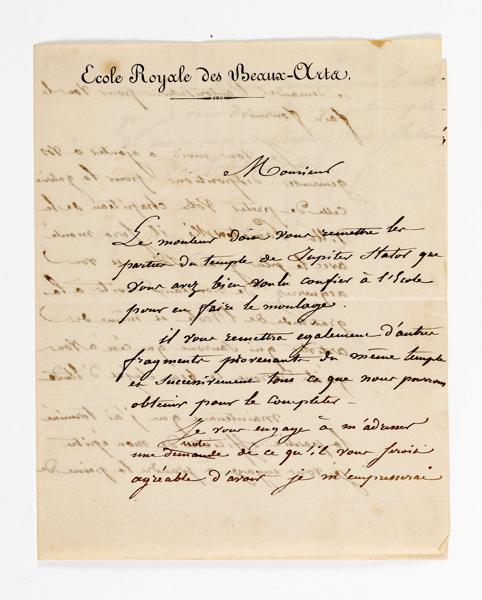 Ecole Royale des Beaux-Arts.
Monsieur
Le mouleur doit vous remettre les
parties du temple de Jupiter Stator que
vous avez bien voulu confier à l'Ecole
pour en faire le moulage.
il vous remettra également d'autres
fragments provenants du même temple
et successivement tous ce que nous pourrons
obtenir pour le completer –
Je vous engage à m'adresser
note
une demande de ce qu'il vous seroit
agréable d'avoir je m'empresserai